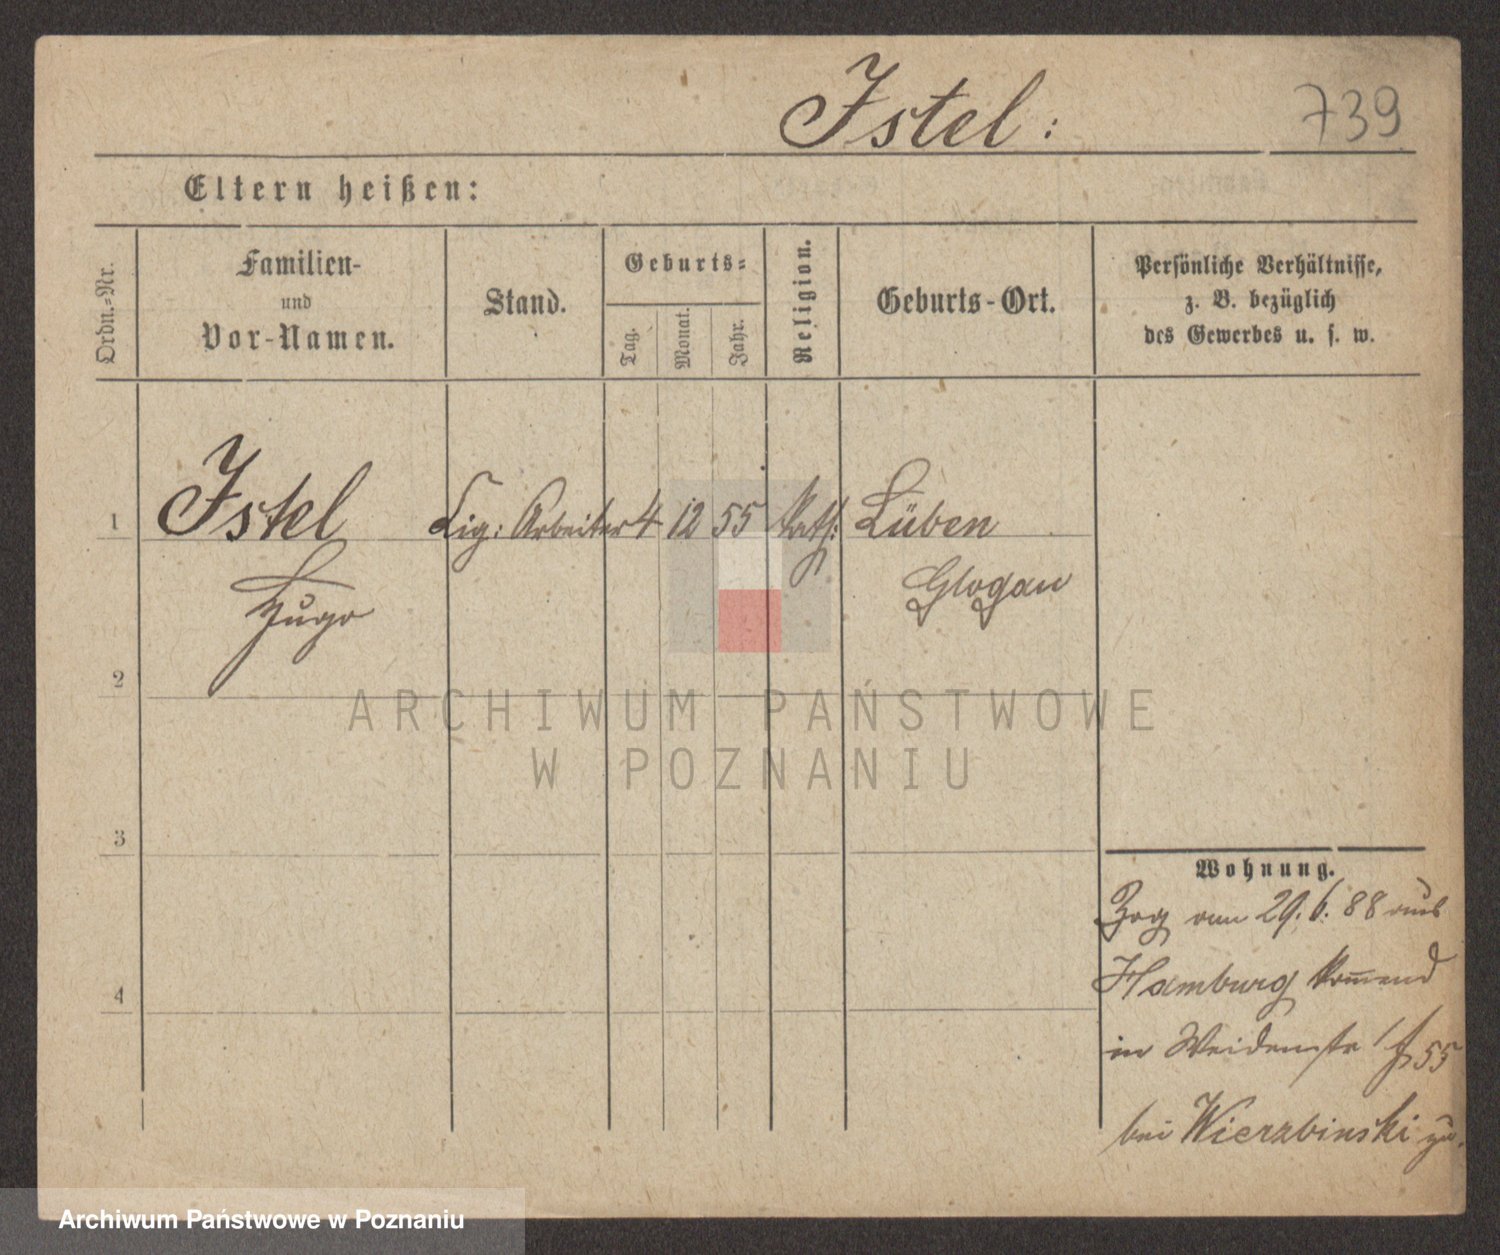 Istel:
739
Eltern heißen:
Ordn.-Nr.
Familien-
und
Vor-Namen.
Stand.
Geburts-
Tag.
Monat.
Jahr.
Religion.
Geburts-Ort.
Persönliche Verhältnisse,
z. B. bezüglich
des Gewerbes u. s. w.
1 Istel Cig: Arbeiter 4 12 55 kath: Lüben
Hugo Glogau
2
ARCHIWUM PAŃSTWOWE
W POZNANIU
3
Wohnung.
Zog am 29.6.88 aus
Hamburg kommend
4
in Weidenstr 55
bei Wierzbinski zu.
Archiwum Państwowe w Poznaniu